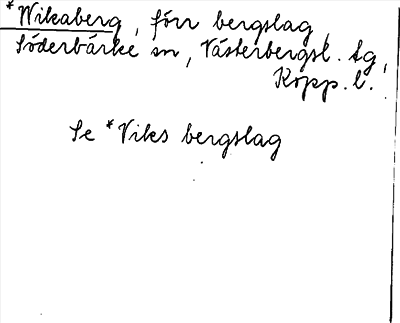 *Wikaberg, förr bergslag,
Söderbärke sn, Västerbergsl. dg,
Kopp. l.
Se *Viks bergslag